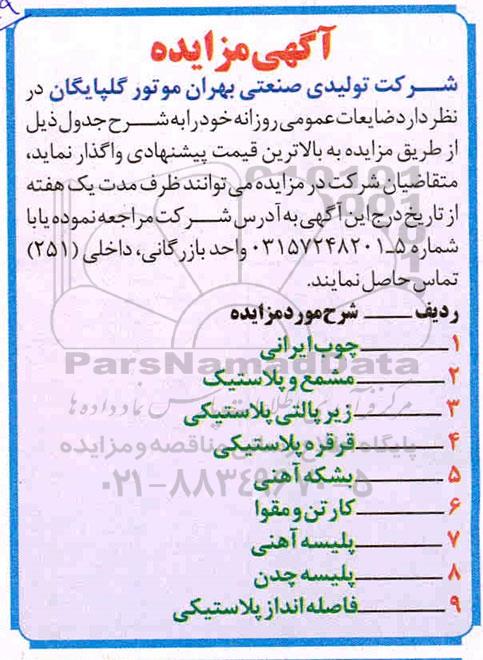 آگهی مزایده
شرکت تولیدی صنعتی بهران موتور گلپایگان در
نظر دارد ضایعات عمومی روزانه خود را به شرح جدول ذیل
از طریق مزایده به بالاترین قیمت پیشنهادی واگذار نماید،
متقاضیان شرکت در مزایده می‌توانند ظرف مدت یک هفته
از تاریخ درج این آگهی به آدرس شرکت مراجعه نموده یا با
شماره ۵ـ۰۳۱۵۷۲۴۸۲۰۱ واحد بازرگانی، داخلی (۲۵۱)
تماس حاصل نمایند.
ردیف ــــ شرح مورد مزایده
۱ ــــ چوب ایرانی
۲ ــــ مشمع و پلاستیک
۳ ــــ زیر پالتی پلاستیکی
۴ ــــ قرقره پلاستیکی
۵ ــــ بشکه آهنی
۶ ــــ کارتن و مقوا
۷ ــــ پلیسه آهنی
۸ ــــ پلیسه چدن
۹ ــــ فاصله انداز پلاستیکی
ParsNamadData
پایگاه اطلاع رسانی مناقصه و مزایده
۰۲۱-۸۸۳۴۹۶۷۰-۵